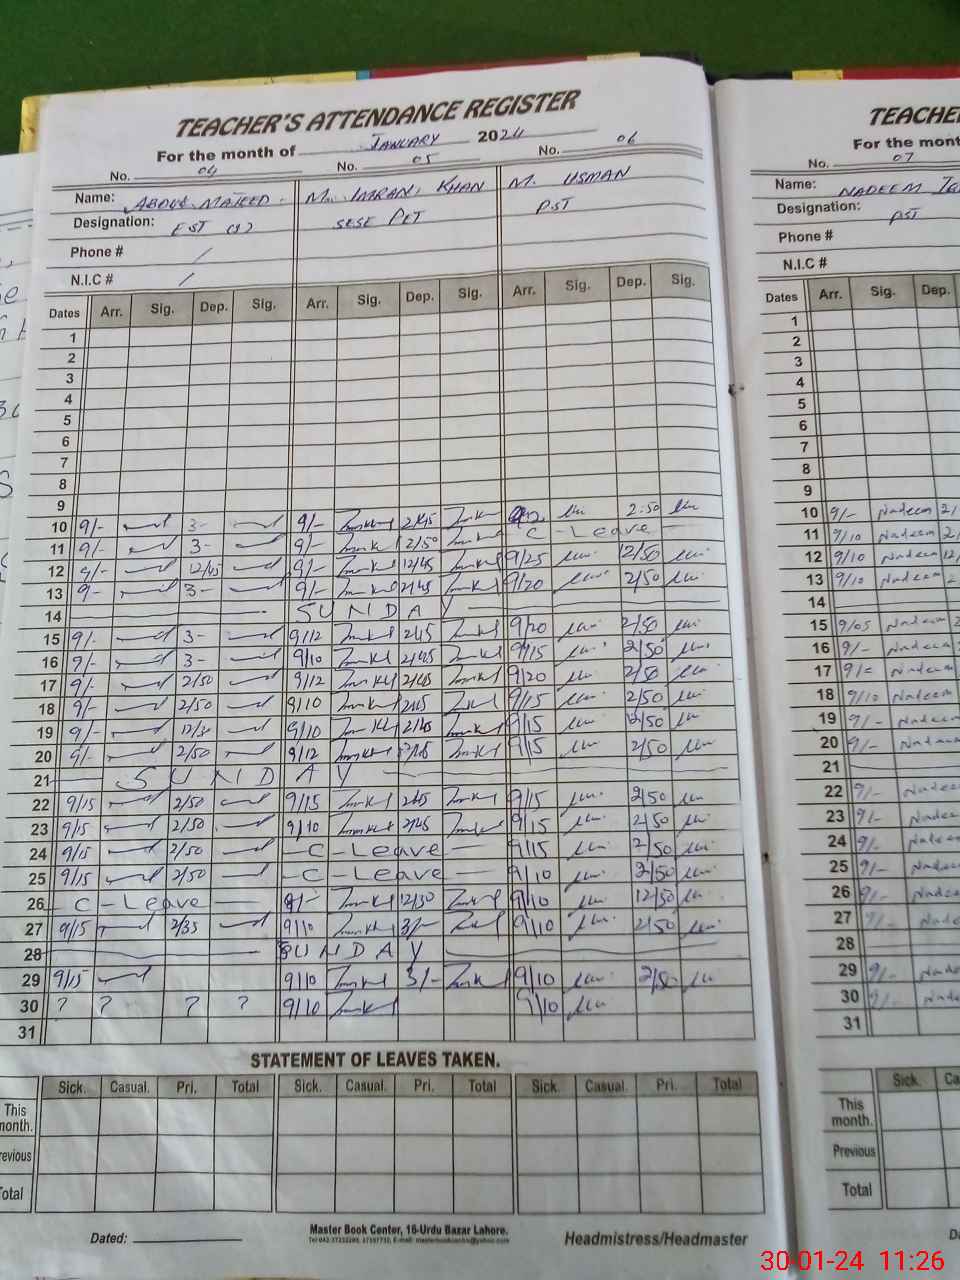 TEACHER'S ATTENDANCE REGISTER
For the month of JANUARY 2024
No. 04 No. 05 No. 06
Name: ABDUL MAJEED. M. IMRAN KHAN M. USMAN
Designation: EST SESE PET PST
Phone # /
N.I.C # /
Dates Arr. Sig. Dep. Sig. Arr. Sig. Dep. Sig. Arr. Sig. Dep. Sig.
1
2
3
4
5
6
7
8
9
10 9/- 3- 9/- 2/45 2.50
11 9/- 3- 9/- 2/50 C - Leave
12 9/- 12/45 9/- 12/45 9/25 12/50
13 9/- 3- 9/- 2/45 9/20 2/50
14 SUNDAY
15 9/- 3- 9/12 2/45 9/20 2/50
16 9/- 3- 9/10 2/45 9/15 2/50
17 9/- 2/50 9/12 2/45 9/20 2/50
18 9/- 2/50 9/10 2/45 9/15 2/50
19 9/- 9/10 9/15 12/50
20 9/- 2/50 9/12 9/15 2/50
21 SUNDAY
22 9/15 2/50 9/15 2/45 9/15 2/50
23 9/15 2/50 9/10 2/45 9/15 2/50
24 9/15 2/50 - C - Leave 9/15 2/50
25 9/15 2/50 - C - Leave 9/10 2/50
26 - C - Leave 9/- 12/50 9/10 12/50
27 9/15 2/35 9/10 3/- 9/10 2/50
28 SUNDAY
29 9/15 9/10 3/- 9/10 2/50
30 ? ? ? ? 9/10 9/10
31
STATEMENT OF LEAVES TAKEN.
Sick. Casual. Pri. Total Sick. Casual. Pri. Total Sick. Casual. Pri. Total
This month.
Previous
Total
Dated:
Master Book Center, 16-Urdu Bazar Lahore.
Headmistress/Headmaster
TEACHE
For the mont
No. 07
Name: NADEEM
Designation: PST
Phone #
N.I.C #
Dates Arr. Sig. Dep.
1
2
3
4
5
6
7
8
9
10 9/- Nadeem
11 9/10 Nadeem
12 9/10 Nadeem
13 9/10 Nadeem
14
15 9/05 Nadeem
16 9/- Nadeem
17 Nadeem
18 9/10 Nadeem
19 9/- Nadeem
20 9/- Nadeem
21
22 9/- Nadeem
23 9/- Nadeem
24 9/- Nadeem
25 9/- Nadeem
26 9/- Nadeem
27 9/- Nadeem
28
29 9/- Nadeem
30 9/- Nadeem
31
Sick. Ca
This month.
Previous
Total
30-01-24 11:26